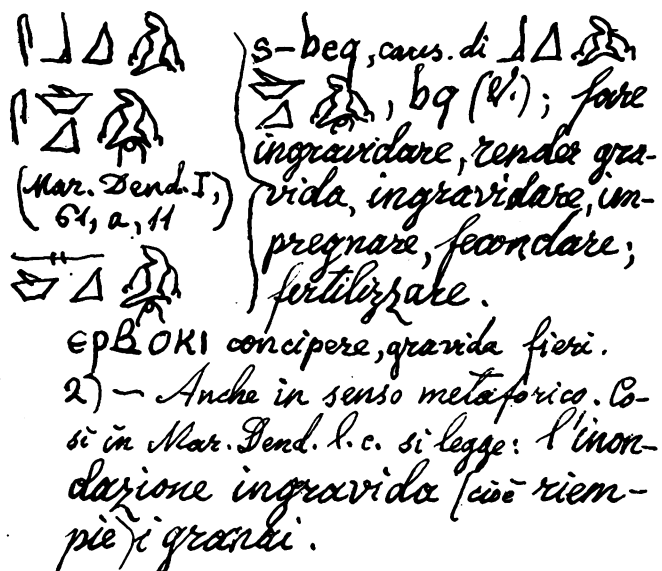 𓋴𓃀𓈎
(Mar. Dend. I,
61, a, 11)
s-beq, caus. di 𓃀𓈎
, bq (V.); fare
ingravidare, render gra-
vida, ingravidare, im-
pregnare, fecondare;
fertilizzare.
ⲉⲣⲃⲟⲕⲓ concipere, gravida fieri.
2) — Anche in senso metaforico. Co-
sì in Mar. Dend. l. c. si legge: l'inon-
dazione ingravida (cioè riem-
piè) i granai.